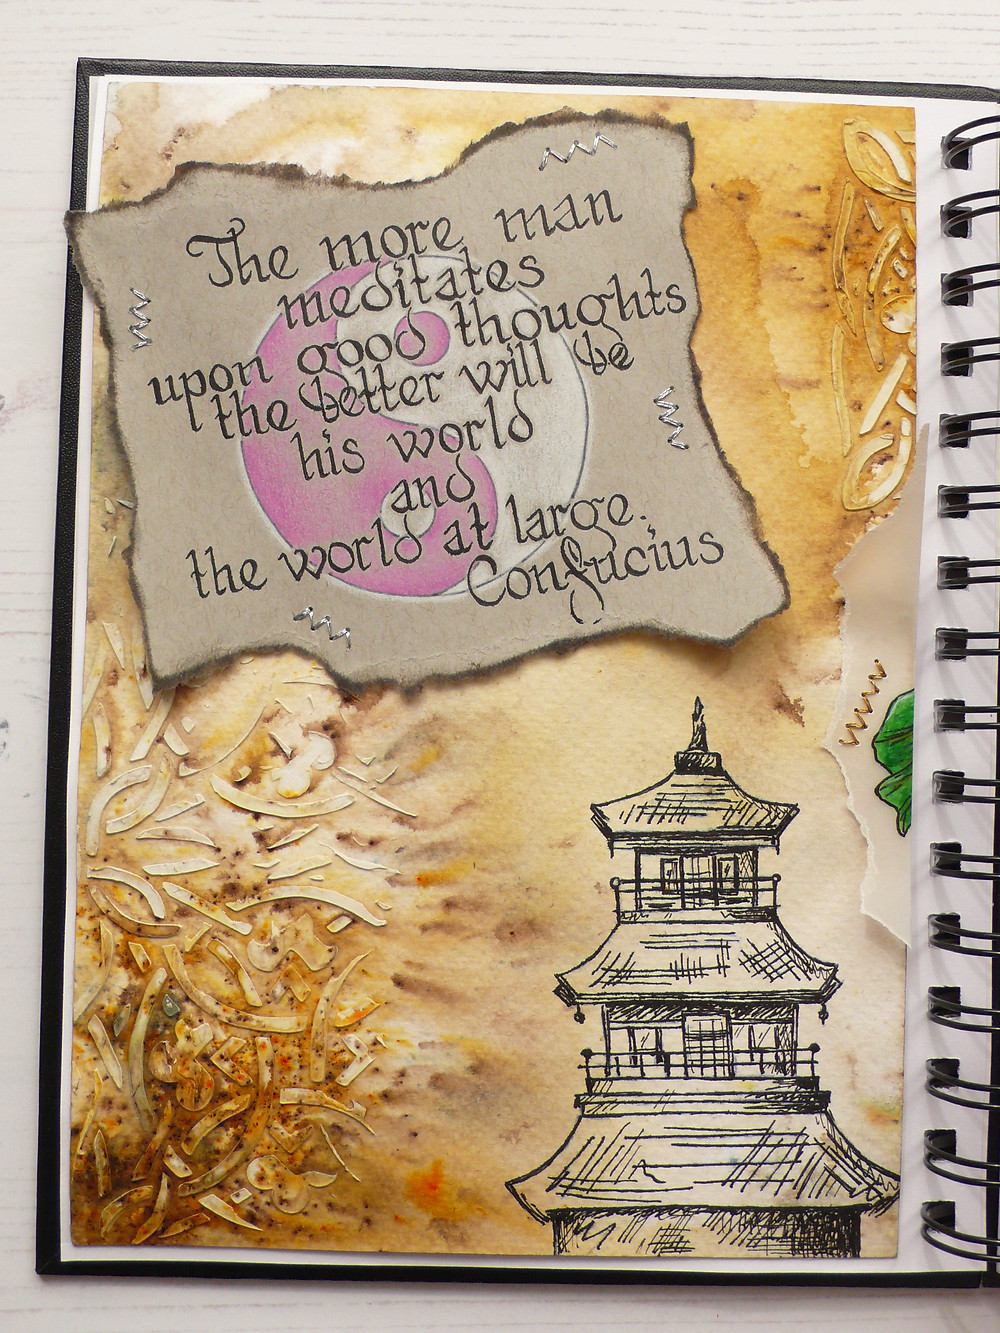 The more man
meditates
upon good thoughts
the better will be
his world
and
the world at large.
Confucius